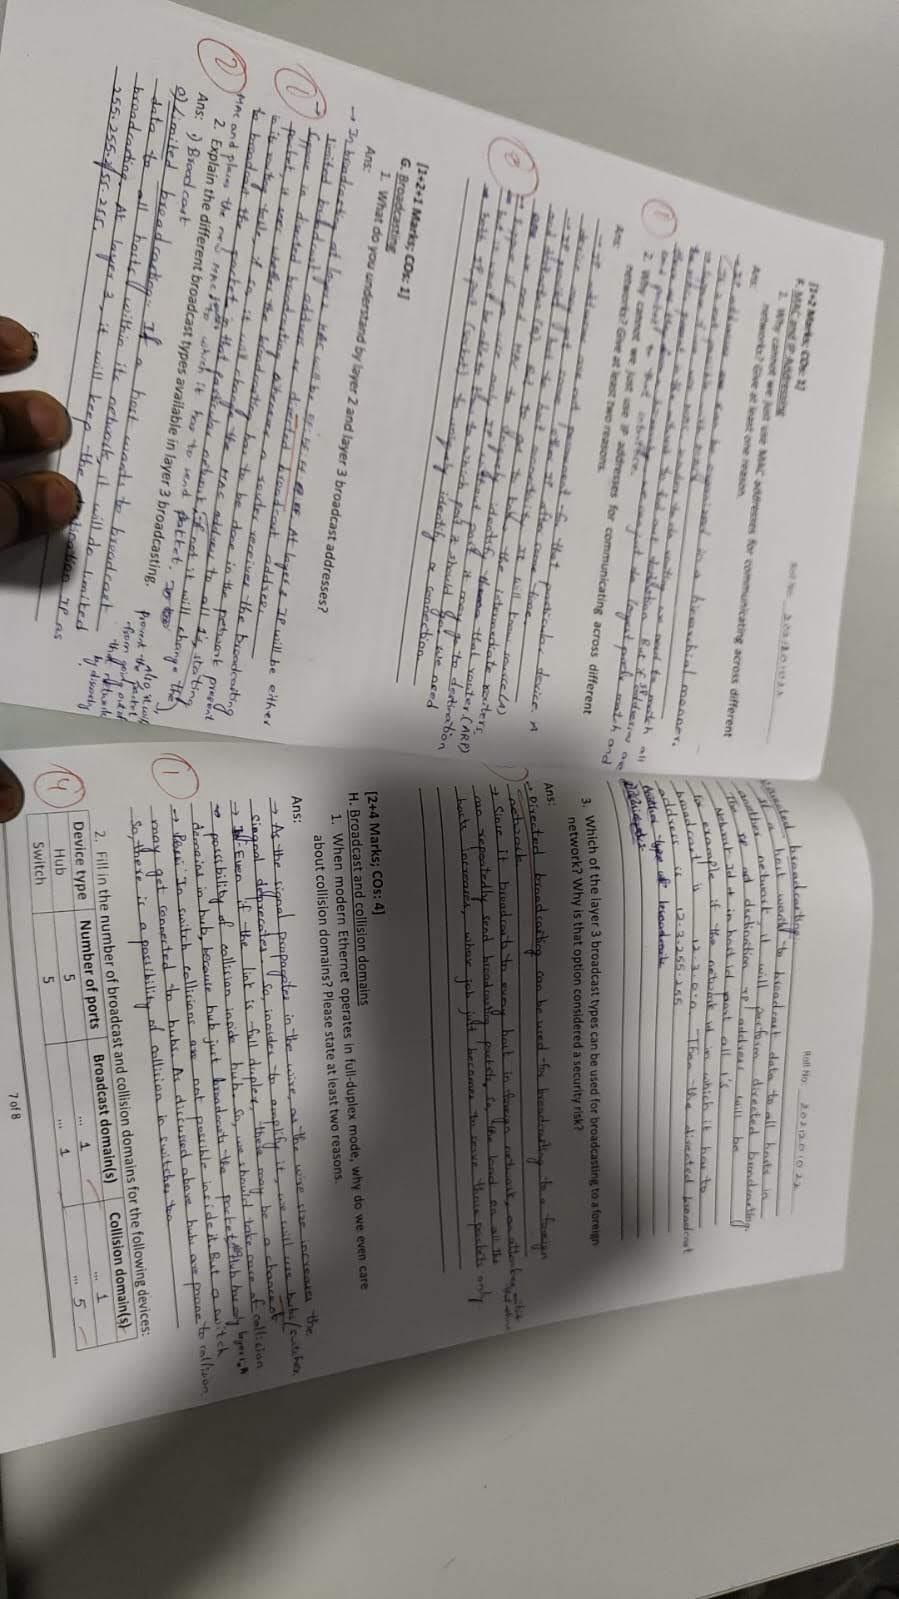 [1+2 Marks; COs: 1]
Roll No: 202120102
F. MAC and IP Addressing
1. Why cannot we just use MAC addresses for communicating across different
networks? Give at least one reason.
Ans:
→ IP addresses can be organized in a hierarchial manner.
It is not possible with MAC
→ Suppose if we use MAC, routing we need to match all
the present in the network to find out destination. But if IP addresses are
there as they form hierarchy we can just do longest prefix match and
send packet to that interface.
1
2. Why cannot we just use IP addresses for communicating across different
networks? Give at least two reasons.
Ans:
→ IP addresses are not permanent for that particular device. A
device may get some other IP after some time.
→ IP provides host to host connectivity. It will know source (A)
and destination (B). But to get to know the intermediate routers,
we need MAC to uniquely identify that router. (ARP)
→ Suppose if we use only IP without port it may go to destination
but it won't be able to know to which port it should go. We need
both IP, port (socket) to uniquely identify a connection.
2
[1+2+1 Marks; COs: 1]
G. Broadcasting
1. What do you understand by layer 2 and layer 3 broadcast addresses?
Ans:
→ In broadcasting at layer 2 MAC will be FF:FF:FF FF. At layer 3 IP will be either
limited broadcast address or directed broadcast address.
→ Suppose in directed broadcasting whenever a router receives the broadcasting
packet, it sees whether the broadcasting has to be done in the network present
in its routing table, if so, it will change the MAC address to all 1's, stating
to broadcast the packet in that particular network, if not it will change the
MAC and places the new MAC to which it has to send packet.
1
2. Explain the different broadcast types available in layer 3 broadcasting.
Ans: i) Broadcast
a) Limited broadcasting: If a host wants to broadcast
data to all hosts within its network, it will do limited
broadcasting. At layer 3, it will keep the destination IP as
255.255.255.255.
Also, it will
prevent the packet
from going out of
that network
by
2
Roll No: 202120102
Directed broadcasting:
If a host wants to broadcast data to all hosts in
another network, it will perform directed broadcasting.
The destination IP address will be
Network Id + in host id part all 1's
for example if the network id in which it has to
broadcast is 12.3.0.0 Then the directed broadcast
address is 12.3.255.255
Another type of broadcast
3. Which of the layer 3 broadcast types can be used for broadcasting to a foreign
network? Why is that option considered a security risk?
Ans:
→ Directed broadcasting can be used for broadcasting to a foreign
network.
→ Since it broadcasts to every host in foreign network, an attacker
can repeatedly send broadcasting packets, so, the load on all the
hosts increases, whose job just becomes to serve those packets only
[2+4 Marks; COs: 4]
H. Broadcast and collision domains
1. When modern Ethernet operates in full-duplex mode, why do we even care
about collision domains? Please state at least two reasons.
Ans:
→ As the signal propagates in the wire, as the wire size increases the
singnal deprecates. So, inorder to amplify it, we will use hubs/switches
→ Even if the link is full duplex, there may be a chance of
possibility of collision inside hub. So, we should take care of collision
domains in hub, because hub just broadcasts the packet. Hub has only layer
→ In switch collisions are not possible inside it. But a switch
may get connected to hubs. As discussed above hubs are prone to collision
So, there is a possibility of collision in switches too
1
2. Fill in the number of broadcast and collision domains for the following devices:
Device type Number of ports Broadcast domain(s) Collision domain(s)
Hub 5 ... 1 ... 1
Switch 5 ... 1 ... 5
4
7 of 8